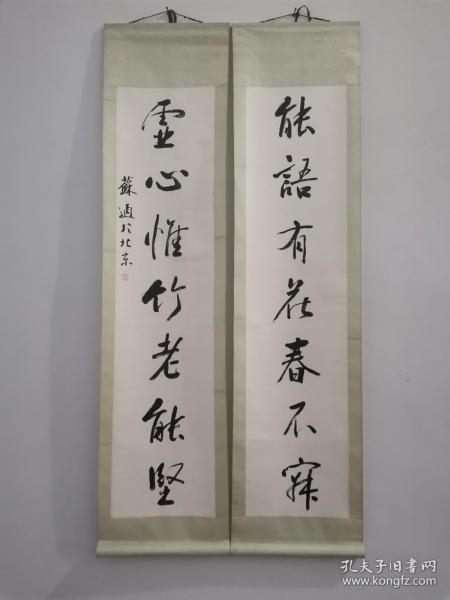 能語有花春不寂
虛心惟竹老能堅
蘇適於北京
孔夫子旧书网
www.kongfz.com